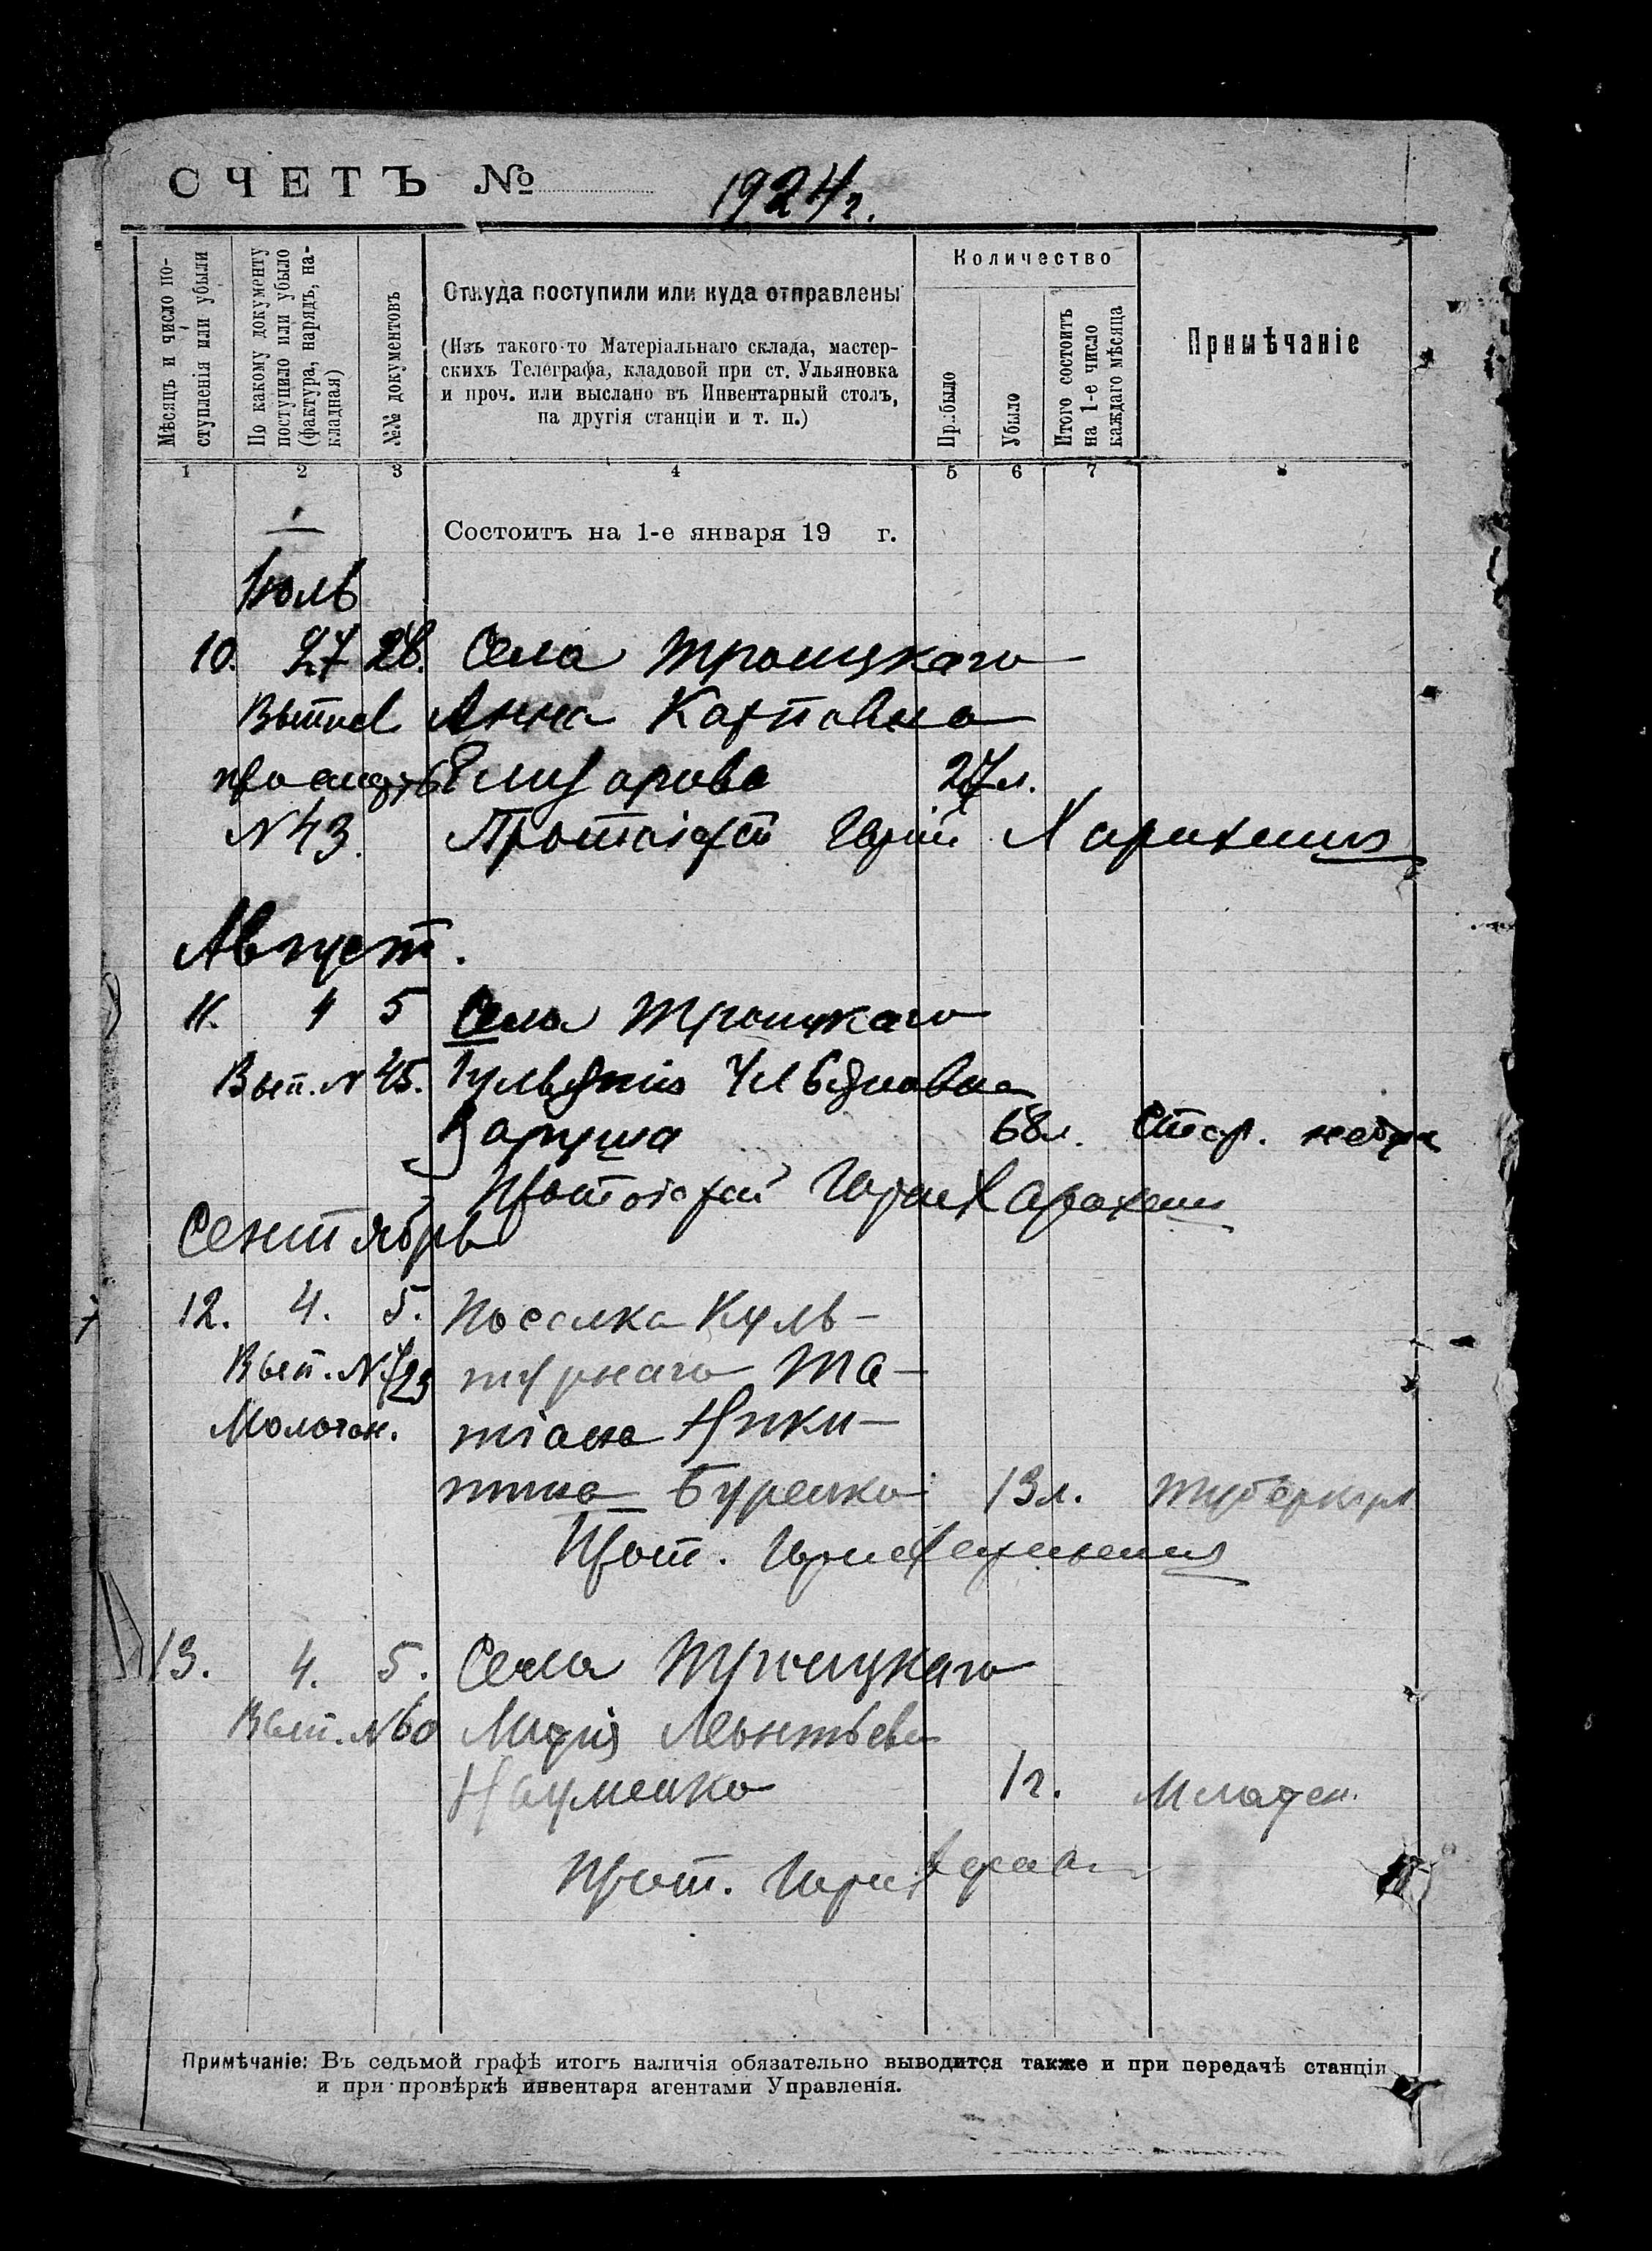 СЧЕТЪ №
1924 г.
Мѣсяцъ и число по-
ступленія или убыли
По какому документу
поступило или убыло
(фактура, нарядъ, на-
кладная)
№№ документовъ
Откуда поступили или куда отправлены
(Изъ такого-то Матеріальнаго склада, мастер-
скихъ Телеграфа, кладовой при ст. Ульяновка
и проч. или выслано въ Инвентарный столъ,
на другія станціи и т. п.)
Количество
Прибыло
Убыло
Итого состоитъ
на 1-е число
каждаго мѣсяца
Примѣчаніе
1 2 3 4 5 6 7
Состоитъ на 1-е января 19 г.
Іюль
10. 27 28. Села Троицкаго
Анна Карповна
Елизарова 27 л.
N 43. Протоіерей Юрій
Август.
11. 4 5 Села Троицкаго
Вып. N 45. Іуліанія
68 л. Стар.
Протоіерей Юрій
Сентябрь
12. 4. 5. Поселка Куль-
Вып. N турнаго Та-
Молочан. тіана Ники-
тина 13 л. Туберкул
Прот. Юрий
13. 4. 5. Села Троицкаго
Вып. N 60 Марія Леонтьева
Науменко 1 г. Младен.
Прот. Юрий
Примѣчаніе: Въ седьмой графѣ итогъ наличія обязательно выводится также и при передачѣ станціи
и при провѣркѣ инвентаря агентами Управленія.